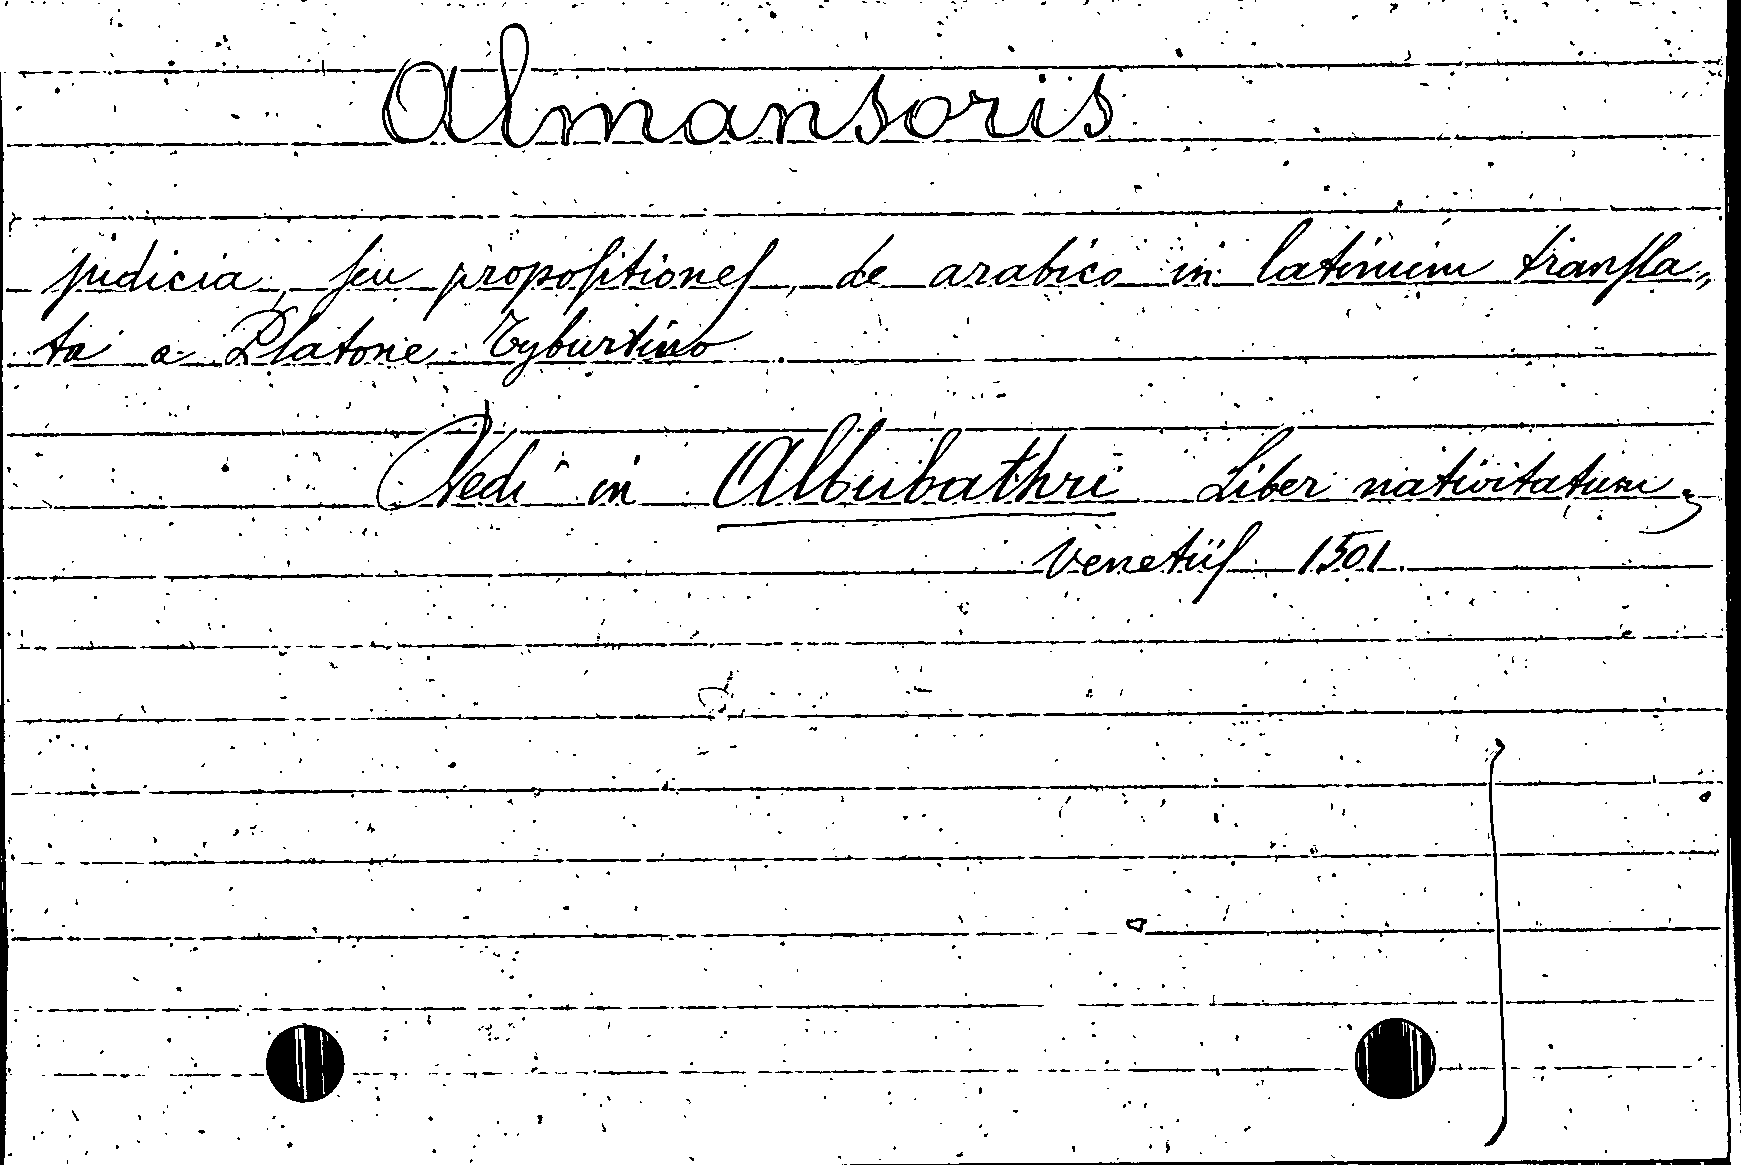 Almansoris
judicia, ſeu propoſitioneſ, de arabico in latinum tranſla„
ta a Platone Tyburtino.
Vedi in Albubathri Liber nativitatum;
Venetiiſ 1501.